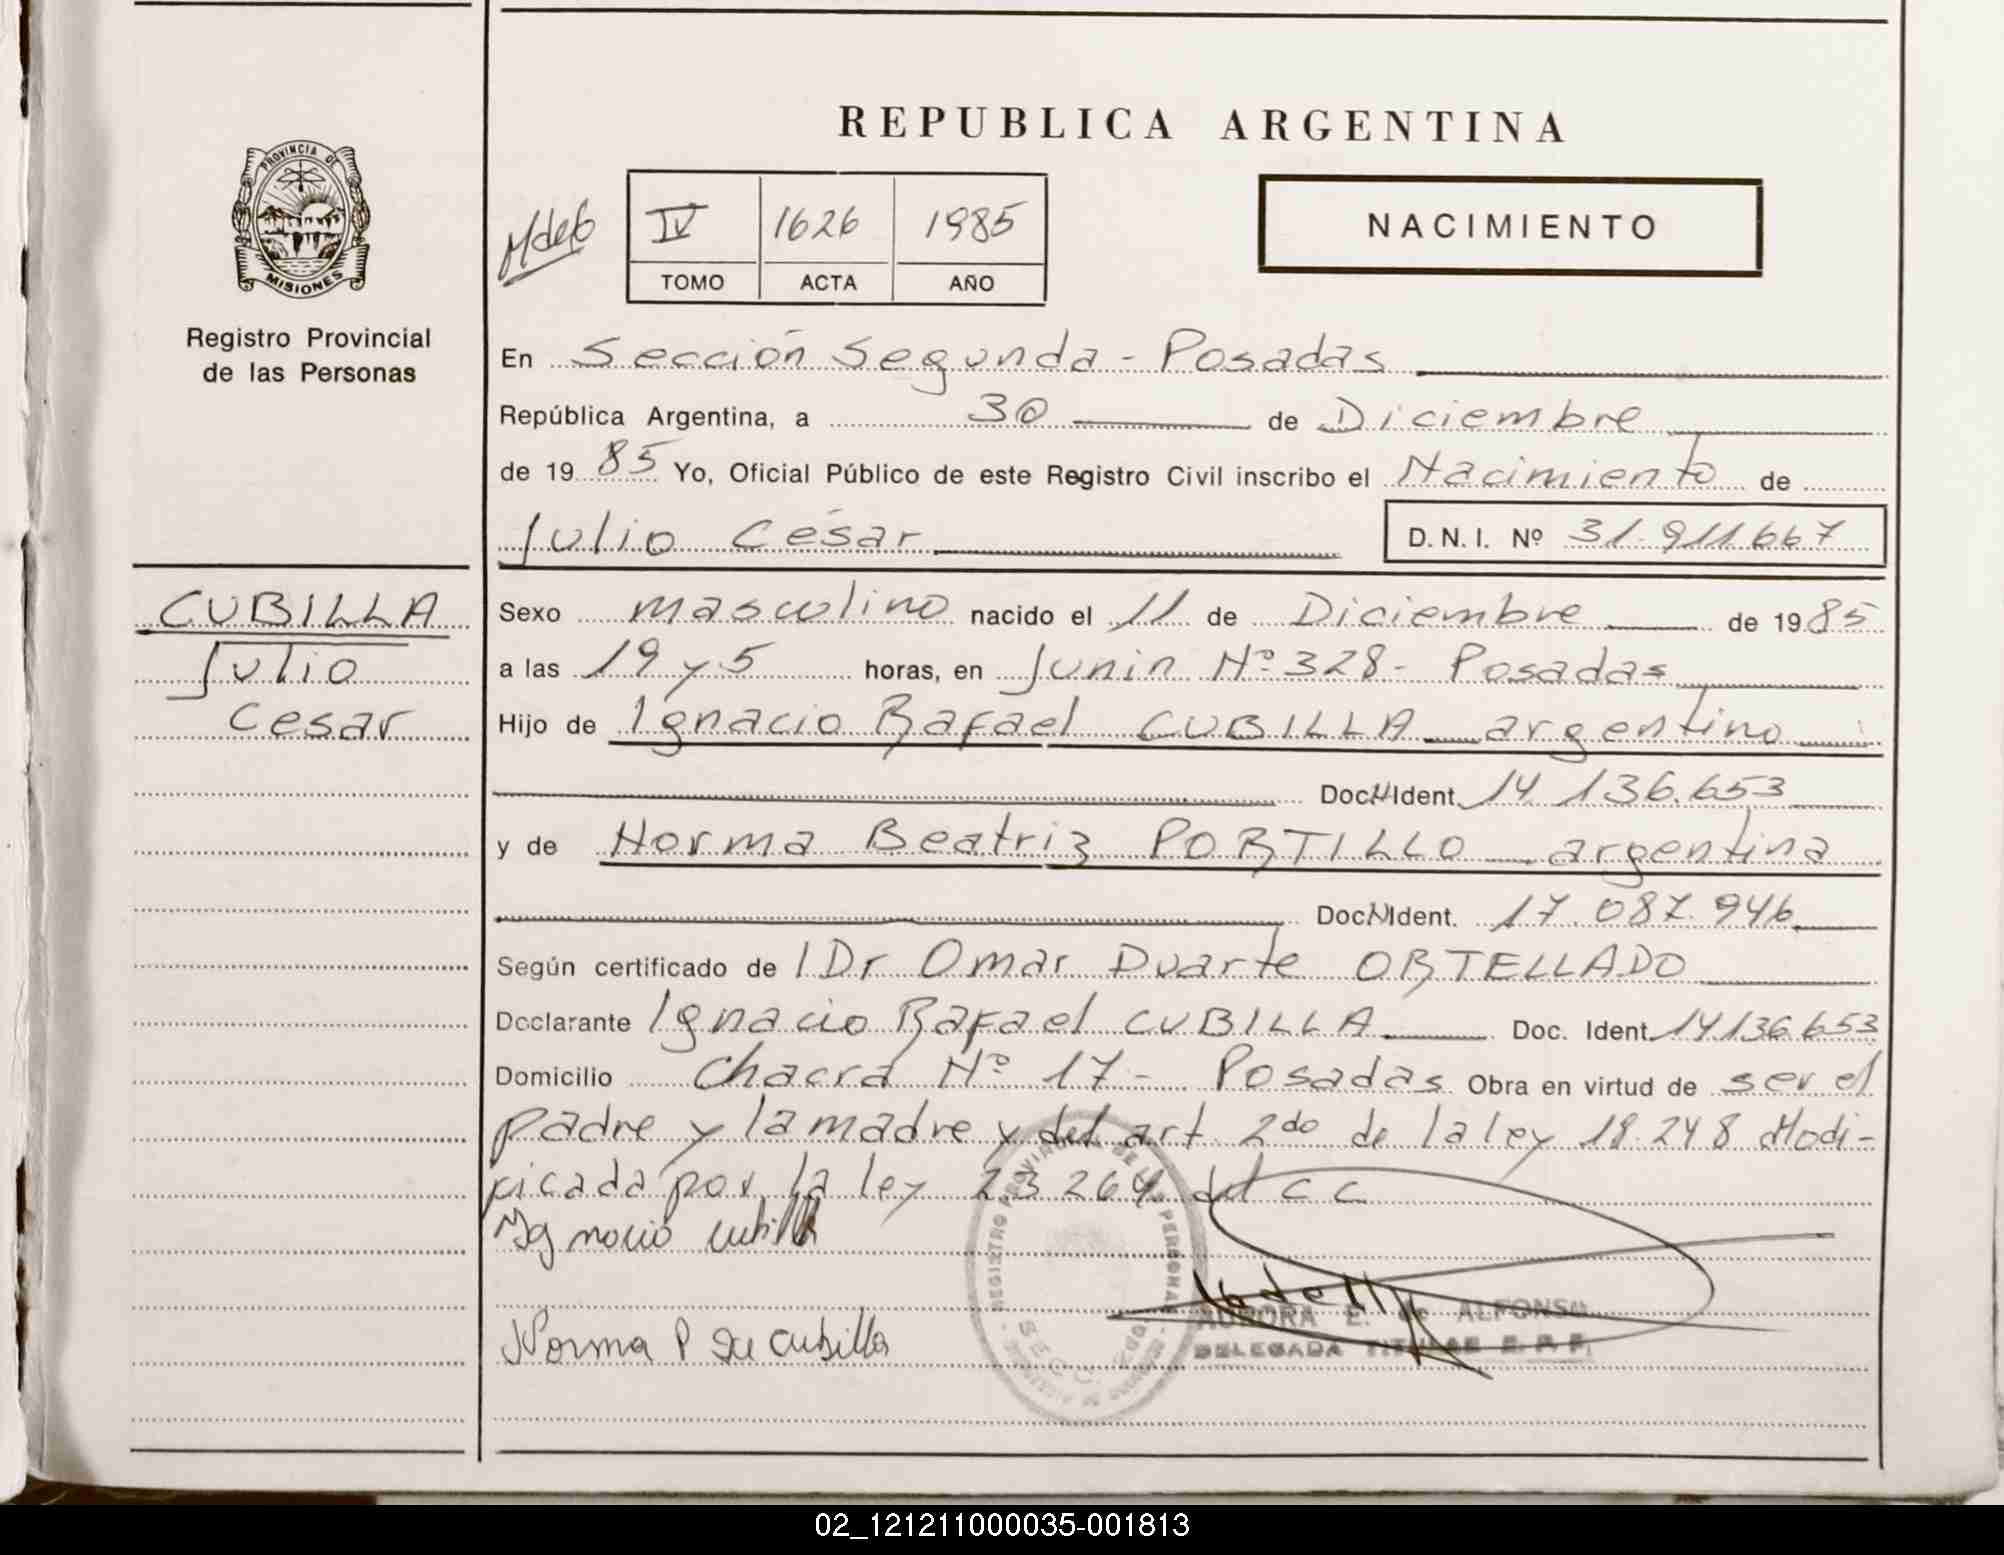 REPUBLICA ARGENTINA
PROVINCIA DE
MISIONES
Registro Provincial
de las Personas
IV 1626 1985
TOMO ACTA AÑO
NACIMIENTO
En Sección Segunda - Posadas
República Argentina, a 30 de Diciembre
de 1985 Yo, Oficial Público de este Registro Civil inscribo el Nacimiento de
Julio César
D.N.I. Nº 31.911.667
CUBILLA
Julio
Cesar
Sexo masculino nacido el 11 de Diciembre de 1985
a las 19 y 5 horas, en Junin Nº 328 - Posadas
Hijo de Ignacio Rafael CUBILLA argentino
Doc. Ident. 14.136.653
y de Norma Beatriz PORTILLO argentina
Doc. Ident. 17.087.946
Según certificado de Dr Omar Duarte ORTELLADO
Declarante Ignacio Rafael CUBILLA Doc. Ident. 14136.653
Domicilio Chacra Nº 17 - Posadas Obra en virtud de ser el
padre y la madre y del art 2do de la ley 18.248 Modi-
ficada por la ley 23264 del C C
Ignacio Cubilla
AURORA E. de ALFONSO
DELEGADA TITULAR
Norma P de Cubilla
02_121211000035-001813